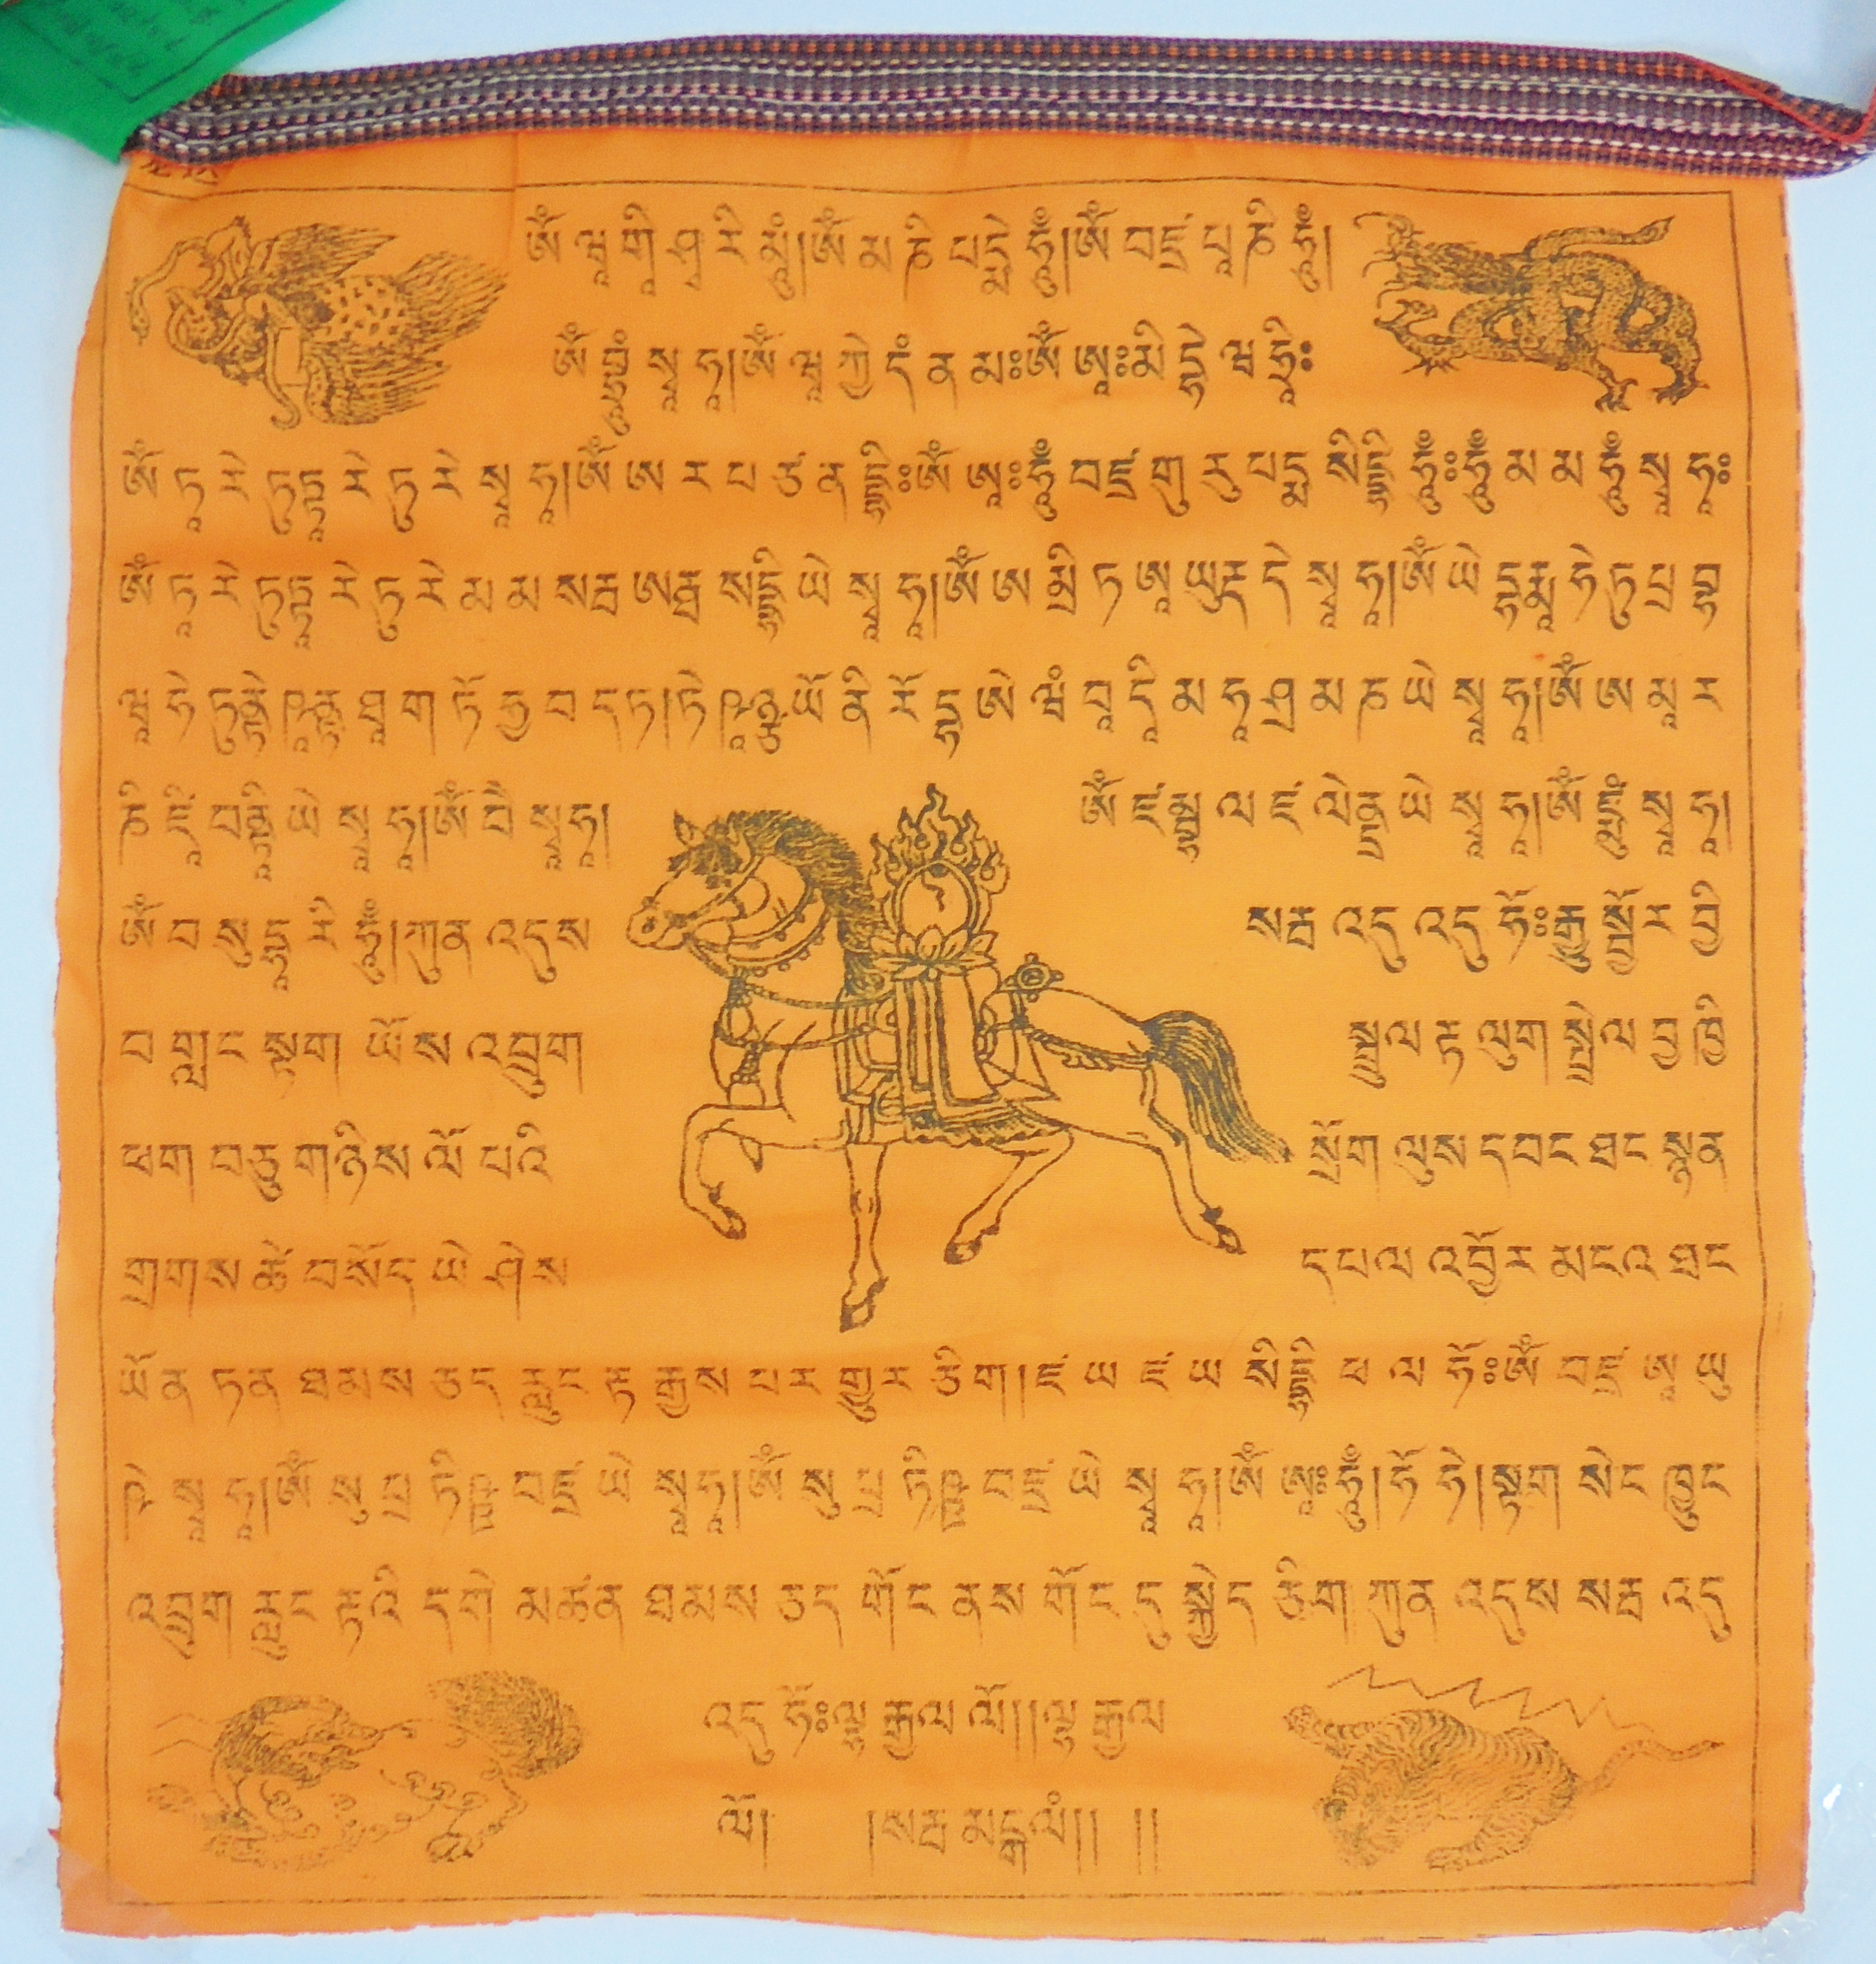 ཨོཾ ཝཱ གཱི ཤྭ རི མཱུྃ།ཨོཾ མ ཎི པདྨེ ཧཱུྃ།ཨོཾ བཛྲ པཱ ཎི ཧཱུྃ།
སྭཱ ཧཱ།ཨོཾ ནམཿཨོཾ ཨཱཿ
ཨོཾ ཏཱ རེ ཏུཏྟཱ རེ ཏུ རེ སྭཱ ཧཱ།ཨོཾ ཨ ར པ ཙ ན དྷཱིཿཨོཾ ཨཱཿཧཱུྃ བཛྲ གུ རུ པདྨ སིདྡྷི ཧཱུྃཿཧཱུྃ མ མ ཧཱུྃ སྭཱ ཧཱཿ
ཨོཾ ཏཱ རེ ཏུཏྟཱ རེ ཏུ རེ མ མ སརྦ ཨརྠ སིདྡྷི ཡེ སྭཱ ཧཱ།ཨོཾ ཨ མྲི ཏ ཨཱ ཡུརྡ དེ སྭཱ ཧཱ།ཨོཾ ཡེ དྷརྨཱ ཧེ ཏུ པྲ བྷ
ཝཱ ཧེ ཏུནྟེ ཥཱནྟ ཐཱ ག ཏོ ཧྱ བ ད ཏ།ཏེ ཥཱཉྩ ཡོ ནི རོ དྷ ཨེ ཝཾ བཱ དཱི མ ཧཱ ཤྲ མ ཎ ཡེ སྭཱ ཧཱ།ཨོཾ ཨ མཱ ར
ཎི ཛཱི བནྟཱི ཡེ སྭཱ ཧཱ།ཨོཾ བཻ སྭཱ ཧཱ། ཨོཾ ཛཾ བྷ ལ ཛ ལེནྡྲ ཡེ སྭཱ ཧཱ།ཨོཾ སྭཱ ཧཱ།
ཨོཾ བ སུ དྷཱ རི ཧཱུྃ།ཀུན འདུས སརྦ འདུ འདུ ཧོཿརྒྱ སྦྱོར བྱི
བ གླང སྟག ཡོས འབྲུག སྦྲུལ རྟ ལུག སྤྲེལ བྱ ཁྱི
ཕག བཅུ གཉིས ལོ པའི སྲོག ལུས དབང ཐང སྙན
གྲགས ཚེ བསོད ཡེ ཤེས དཔལ འབྱོར མངའ ཐང
ཡོན ཏན ཐམས ཅད རླུང རྟ རྒྱས པར གྱུར ཅིག།ཛ ཡ ཛ ཡ སིདྡྷི ཕ ལ ཧོཿཨོཾ བཛྲ ཨཱ ཡུ
ཥེ སྭཱ ཧཱ།ཨོཾ སུ པྲ ཏིཥྛ བཛྲ ཡེ སྭཱ ཧཱ།ཨོཾ སུ པྲ ཏིཥྛ བཛྲ ཡེ སྭཱ ཧཱ།ཨོཾ ཨཱཿཧཱུྃ།ཧོ ཧེ།སྟག སེང ཁྱུང
འབྲུག རླུང རྟའི དགེ མཚན ཐམས ཅད གོང ནས གོང དུ སྐྱེད ཅིག ཀུན འདུས སརྦ འདུ
འདུ ཧོཿལྷ རྒྱལ ལོ།།ལྷ རྒྱལ
ལོ། །སརྦ མངྒ ལཾ།། །།